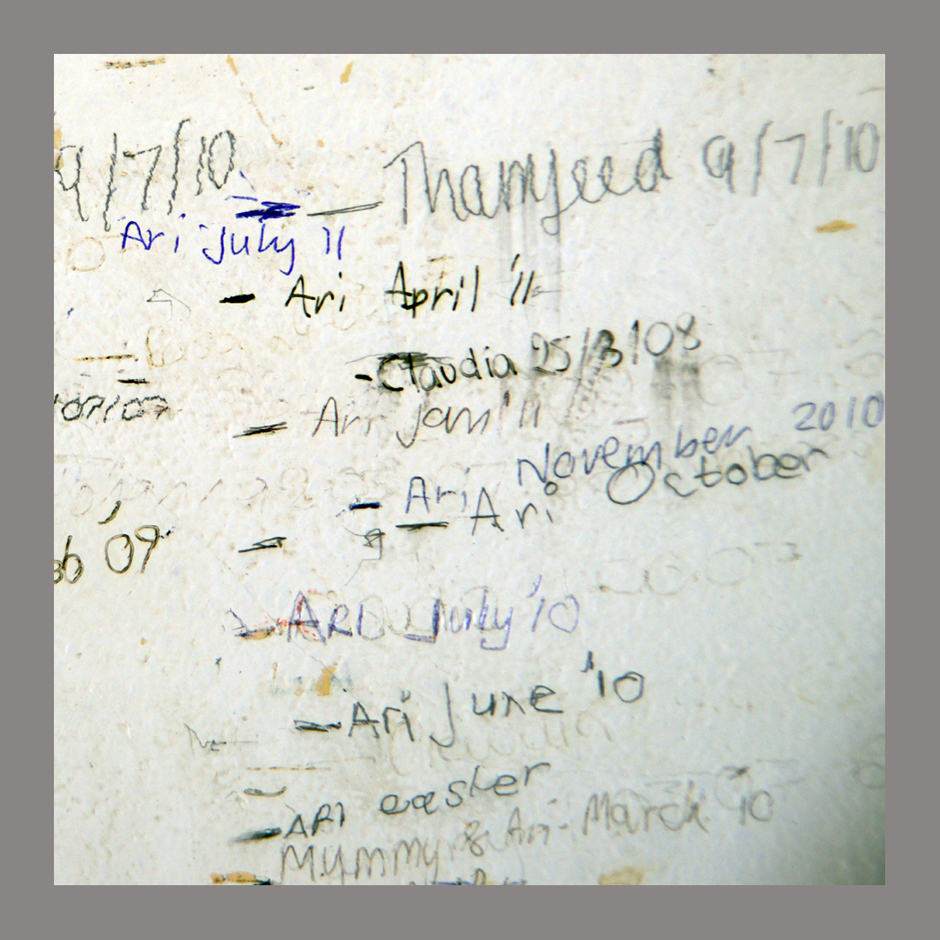 9/7/10 Thamjeed 9/7/10
Ari july 11
- Ari April '11
- Claudia 25/3/08
07/07
Ari jan '11
- Ari November 2010
- Ari October
'09
- ARI July '10
- Ari June '10
- ARI easter
Mummy & Ari - March '10